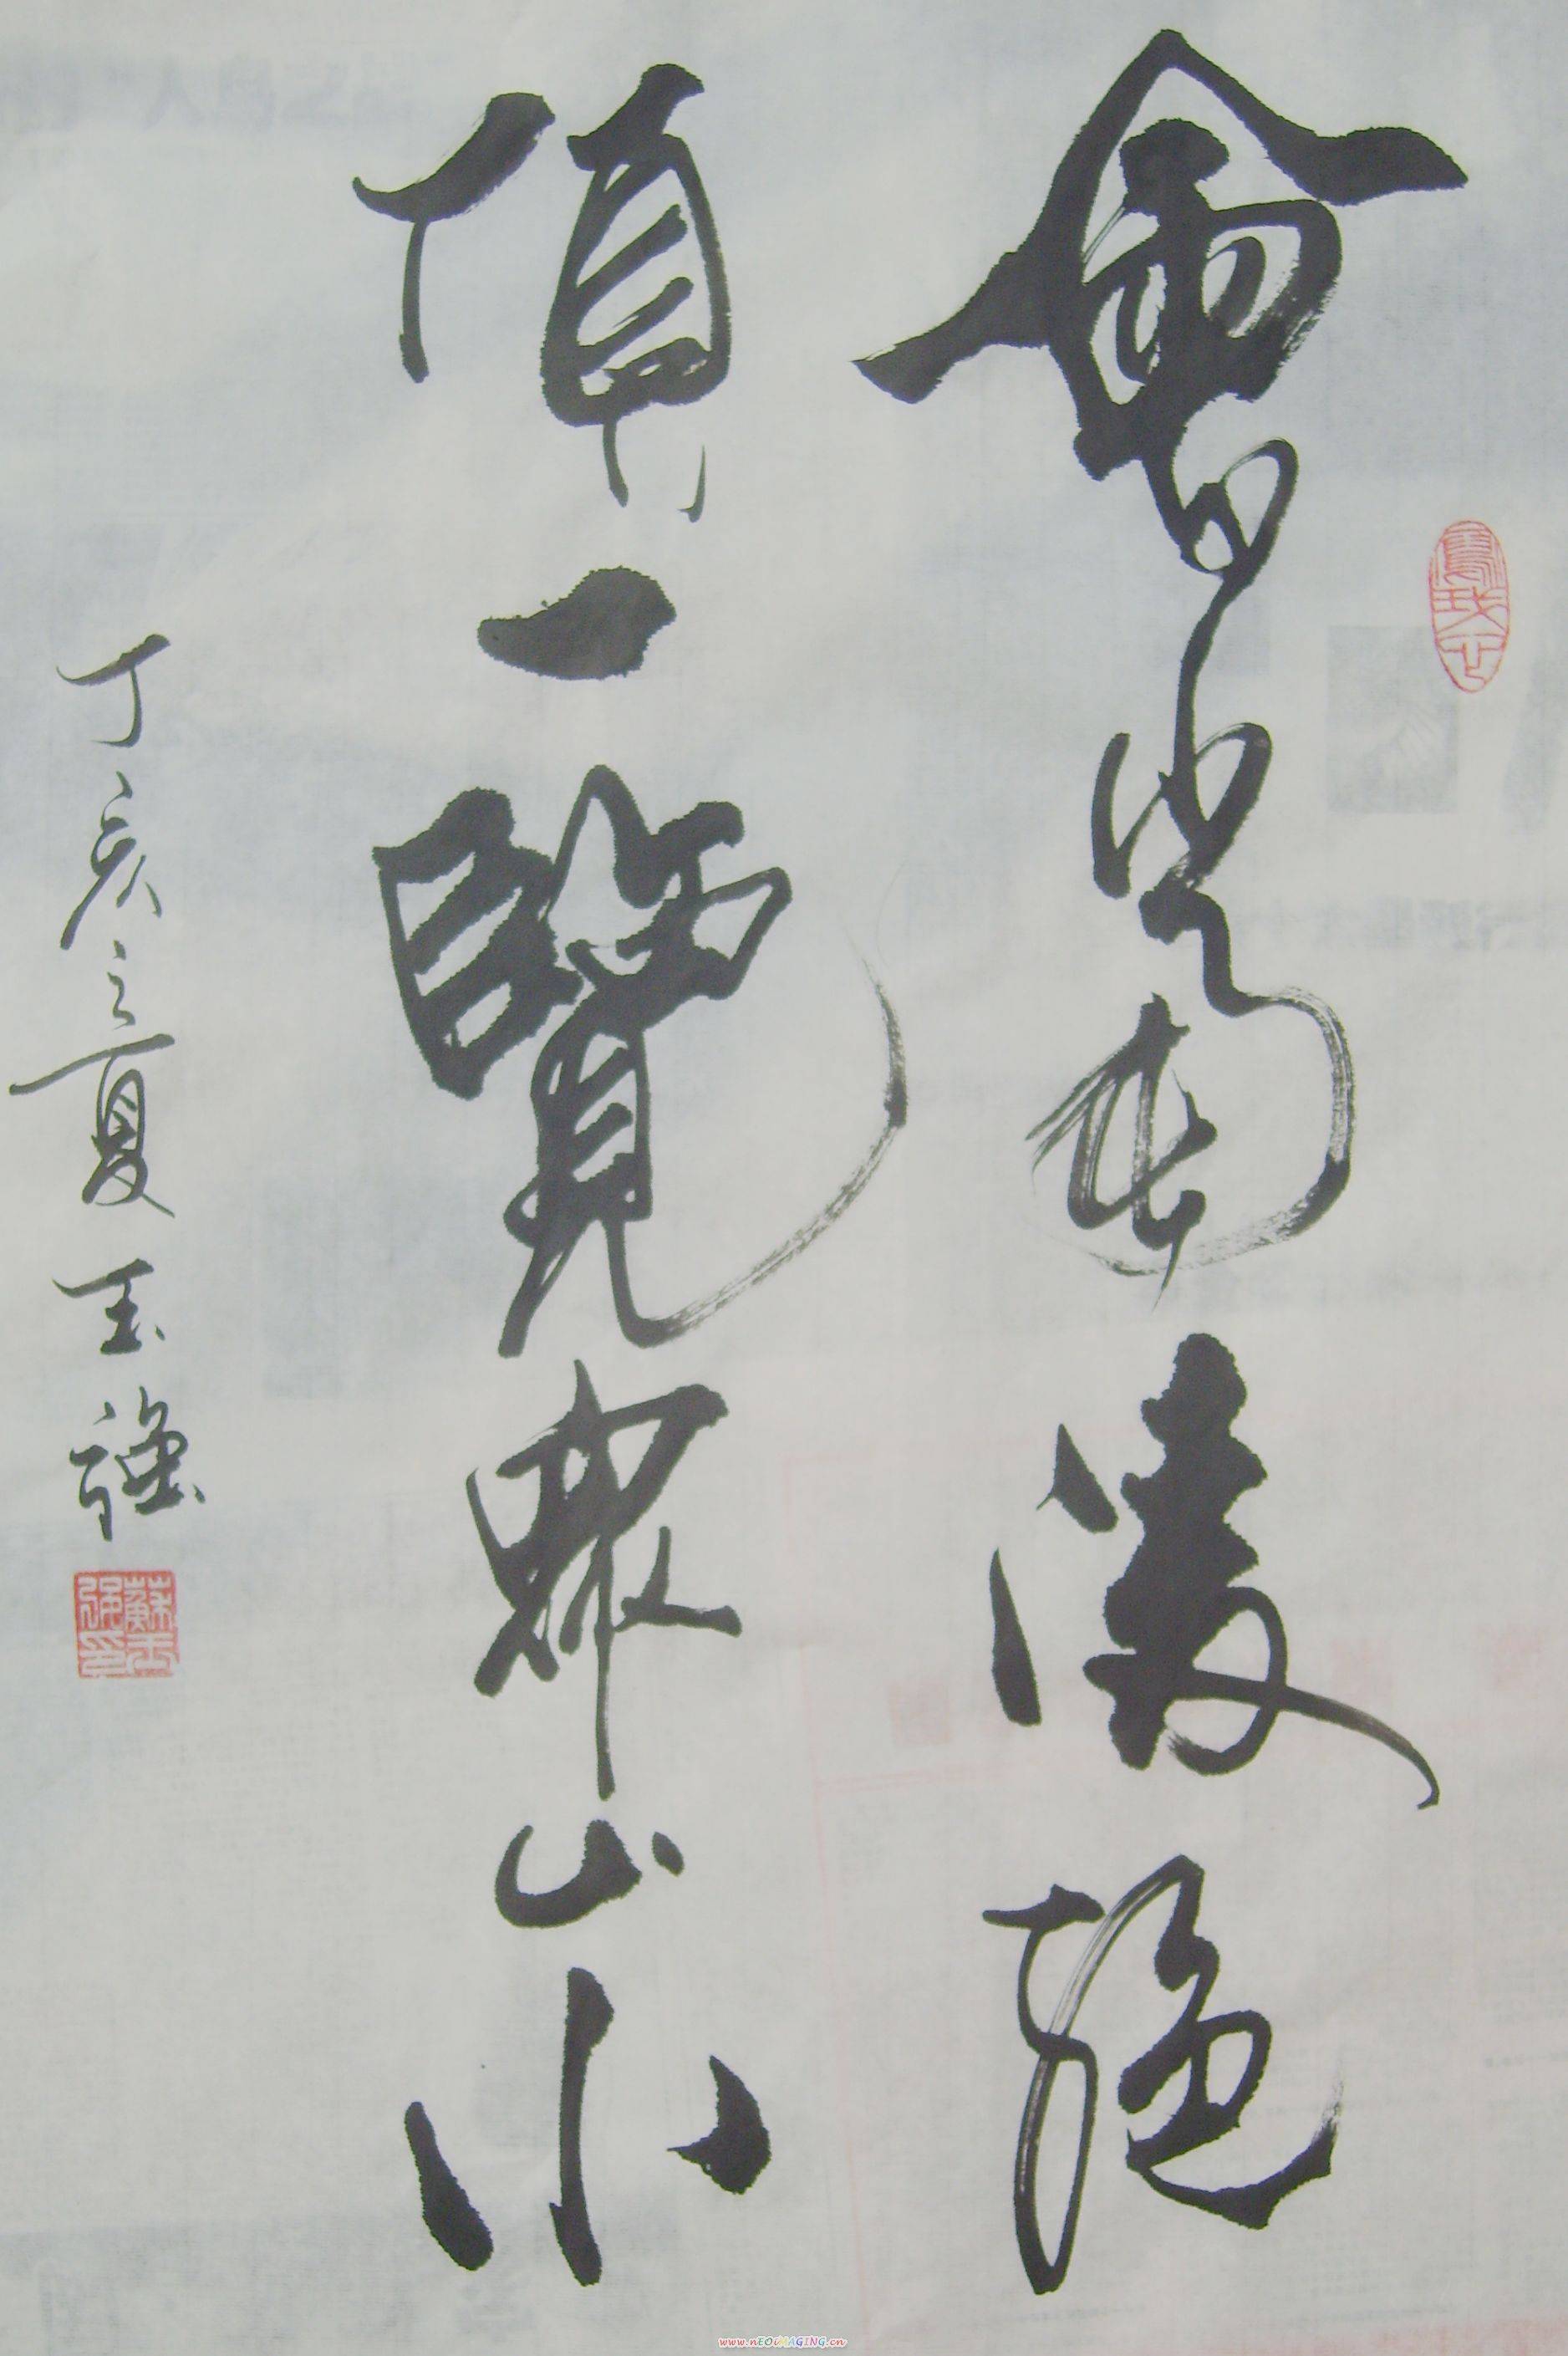 會當凌絕
頂一覽眾山小
丁亥之夏玉強
蘇玉強印
www.nEOiMAGING.cn